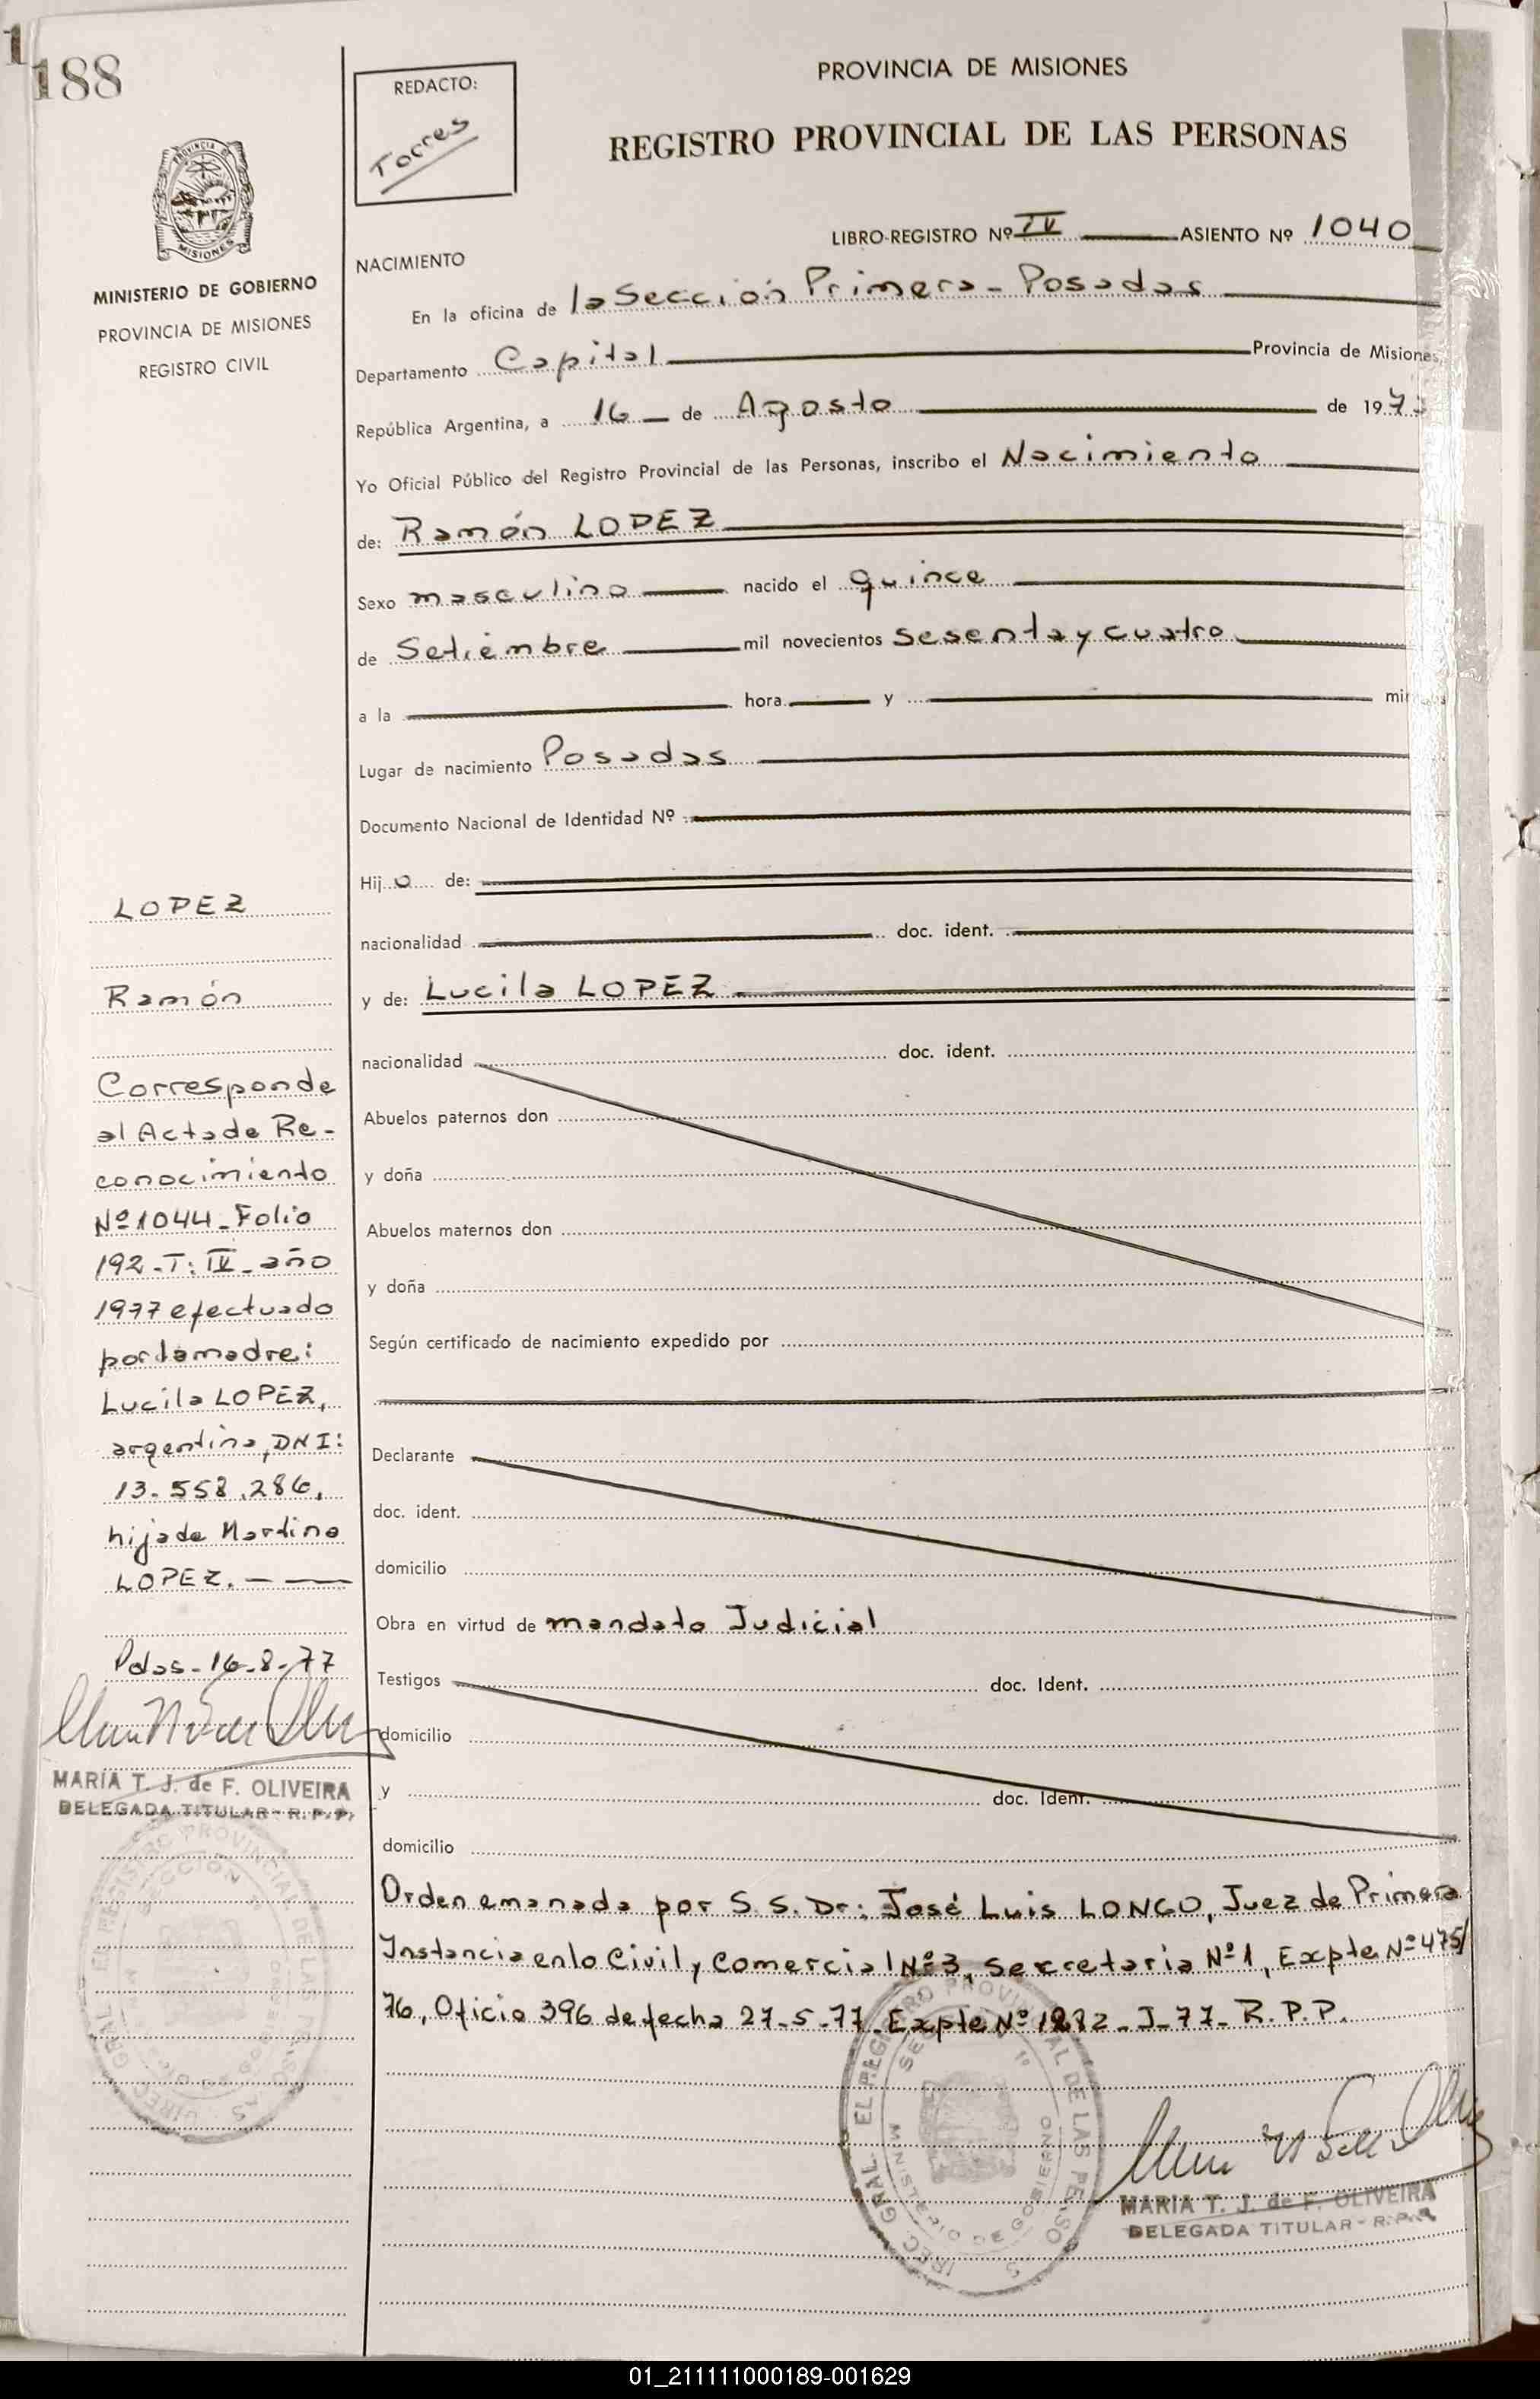 188
REDACTO:
Torres
PROVINCIA DE MISIONES
REGISTRO PROVINCIAL DE LAS PERSONAS
LIBRO-REGISTRO Nº IV ASIENTO Nº 1040
MINISTERIO DE GOBIERNO
PROVINCIA DE MISIONES
REGISTRO CIVIL
NACIMIENTO
En la oficina de la Sección Primera - Posadas
Departamento Capital Provincia de Misiones,
República Argentina, a 16 de Agosto de 197
Yo Oficial Público del Registro Provincial de las Personas, inscribo el Nacimiento
de: Ramón LOPEZ
Sexo masculino nacido el quince
de Setiembre mil novecientos sesenta y cuatro
a la hora y
Lugar de nacimiento Posadas
Documento Nacional de Identidad Nº
Hijo de:
nacionalidad doc. ident.
y de: Lucila LOPEZ
nacionalidad doc. ident.
Abuelos paternos don
y doña
Abuelos maternos don
y doña
Según certificado de nacimiento expedido por
Declarante
doc. ident.
domicilio
Obra en virtud de mandato Judicial
Testigos doc. Ident.
domicilio
y doc. Ident.
domicilio
Orden emanada por S. S. Dr: José Luis LONGO, Juez de Primera
Instancia en lo Civil y Comercial Nº 3, Secretaria Nº 1, Expte Nº 475/
76, Oficio 396 de fecha 27-5-77. Expte Nº 1882-J-77- R. P. P.
MARIA T. J. de F. OLIVEIRA
DELEGADA TITULAR - R.P.P.
LOPEZ
Ramón
Corresponde
al Acta de Re-
conocimiento
Nº 1044 - Folio
192 - T: IV - año
1977 efectuado
por la madre:
Lucila LOPEZ,
argentina, DNI:
13.558.286,
hija de Mardina
LOPEZ. - —
Pdas - 16-8-77
MARIA T. J. de F. OLIVEIRA
DELEGADA TITULAR - R.P.P.
01_211111000189-001629